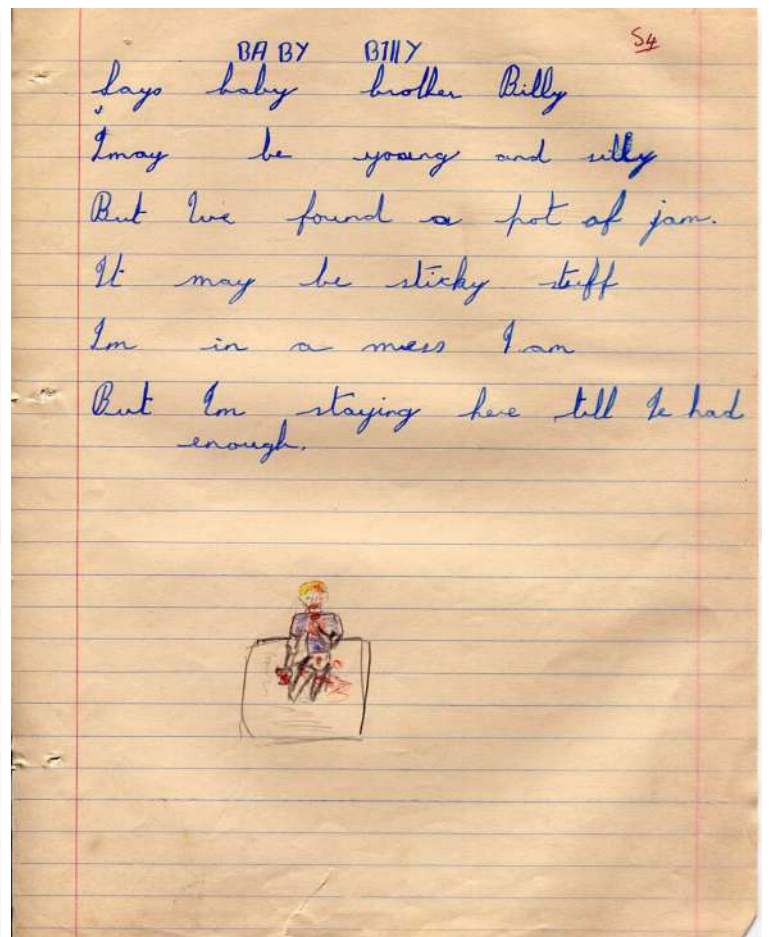 BABY BIllY
S4
Says baby brother Billy
I may be young and silly
But Ive found a pot of jam.
It may be sticky stuff
Im in a mess I am
But Im staying here till Ie had
enough.